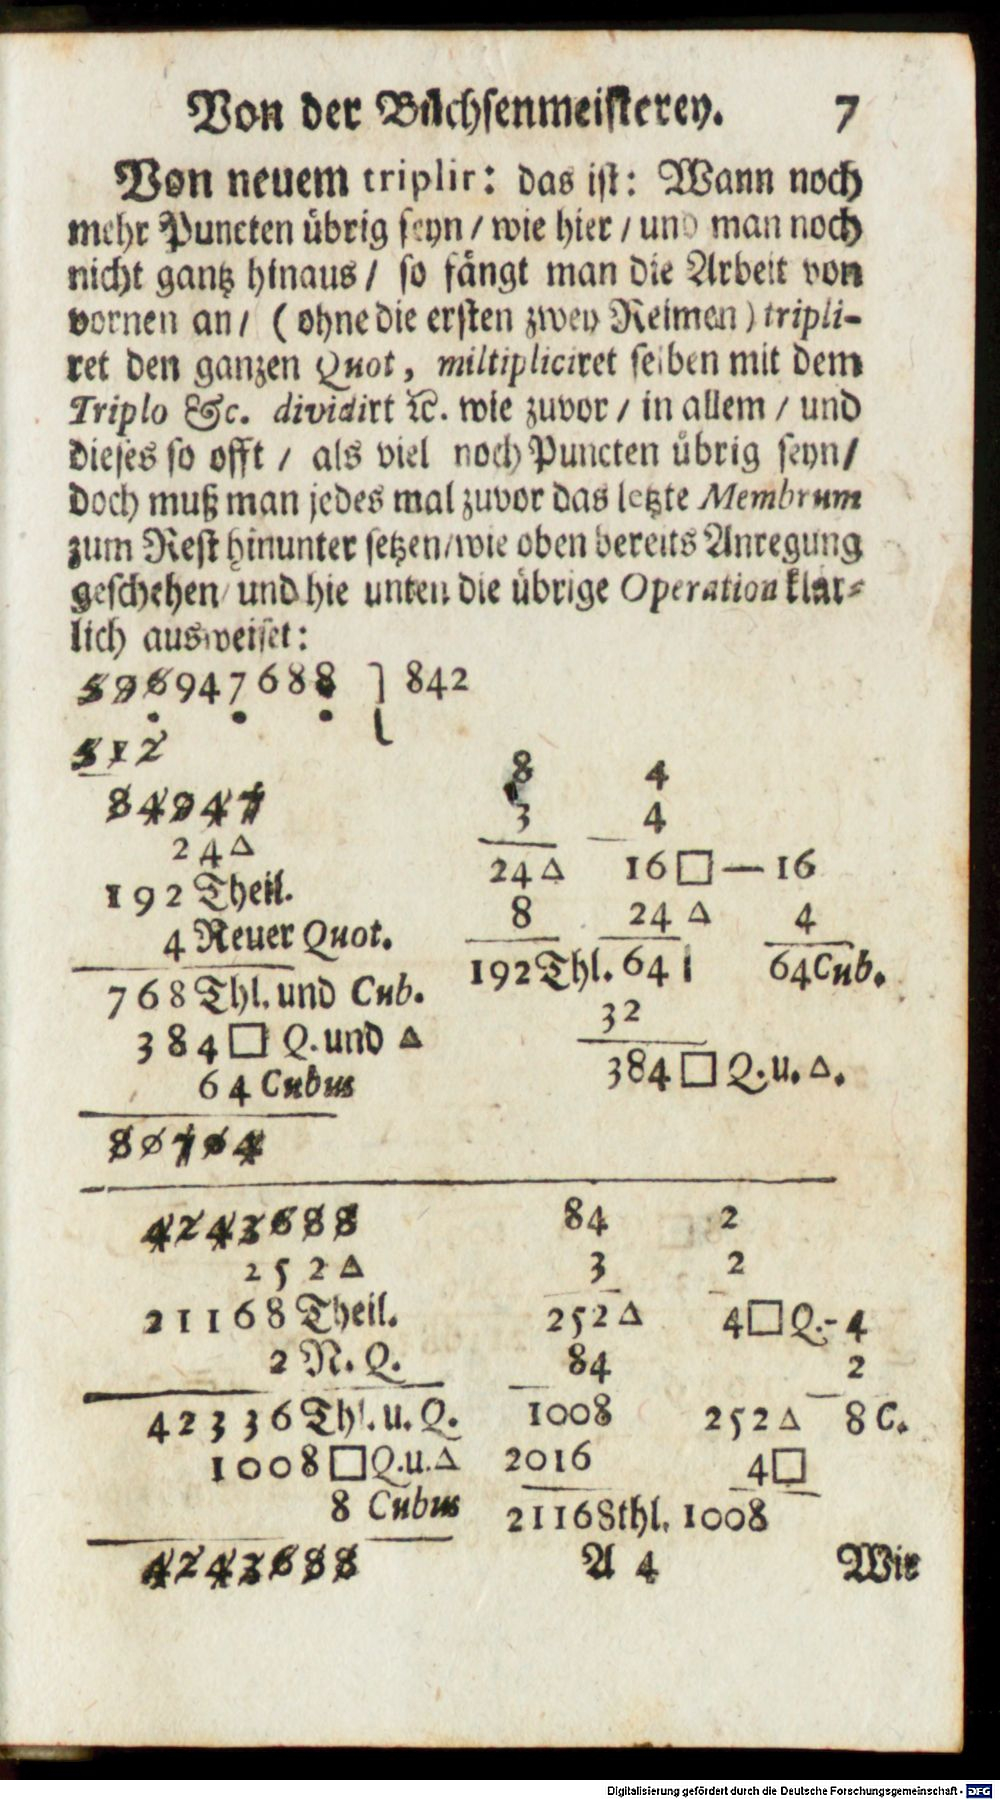 Von der Büchsenmeisterey. 7
Von neuem triplir: das ist: Wann noch
mehr Puncten übrig seyn / wie hier / und man noch
nicht gantz hinaus / so fängt man die Arbeit von
vornen an / ( ohne die ersten zwey Reimen ) tripli-
ret den ganzen Quot, miltipliciret selben mit dem
Triplo &c. dividirt ꝛc. wie zuvor / in allem / und
dieses so offt / als viel noch Puncten übrig seyn /
doch muß man jedes mal zuvor das letzte Membrum
zum Rest hinunter setzen / wie oben bereits Anregung
geschehen / und hie unten die übrige Operation klär-
lich ausweiset:
596947688 ] 842
512
84947
24 △
192 Theil.
4 Neuer Quot.
768 Thl. und Cub.
384 □ Q. und △
64 Cubus
80704
8 4
3 4
24 △ 16 □ — 16
8 24 △ 4
192 Thl. 64 | 64 Cub.
32
384 □ Q. u. △.
4243688
252 △
21168 Theil.
2 N. Q.
42336 Thl. u. Q.
1008 □ Q. u. △
8 Cubus
4243688
84 2
3 2
252 △ 4 □ Q. - 4
84 2
1008 252 △ 8 C.
2016 4 □
21168 thl. 1008
A 4 Wir
Digitalisierung gefördert durch die Deutsche Forschungsgemeinschaft - DFG